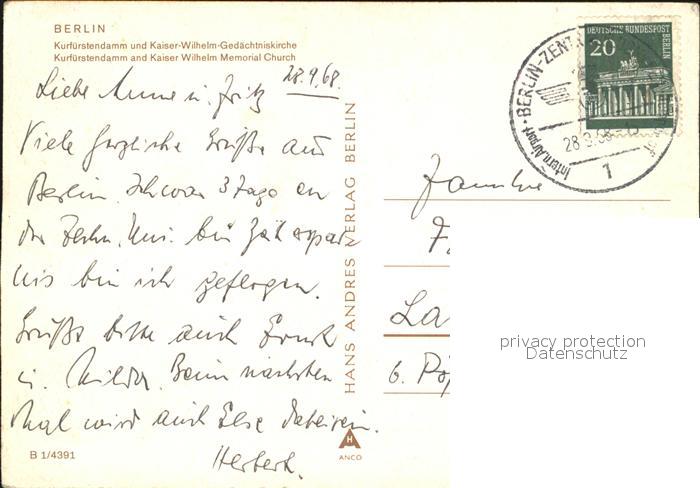 BERLIN
Kurfürstendamm und Kaiser-Wilhelm-Gedächtniskirche
Kurfürstendamm and Kaiser Wilhelm Memorial Church
28.9.68.
Liebe Anne u. Fritz
Viele herzliche Grüße aus
Berlin. Ich war 3 Tage an
der Techn. Uni. bin
bin ich geflogen.
Grüße bitte auch Ernst
u. Hilda. Beim nächsten
Mal wird auch Else dabeisein.
Herbert.
B 1/4391
HANS ANDRES VERLAG BERLIN
ANCO
DEUTSCHE BUNDESPOST
BERLIN
20
BERLIN-ZENT
Intern. Airport
28.9.68
1
Familie
F.
La
6.
privacy protection
Datenschutz